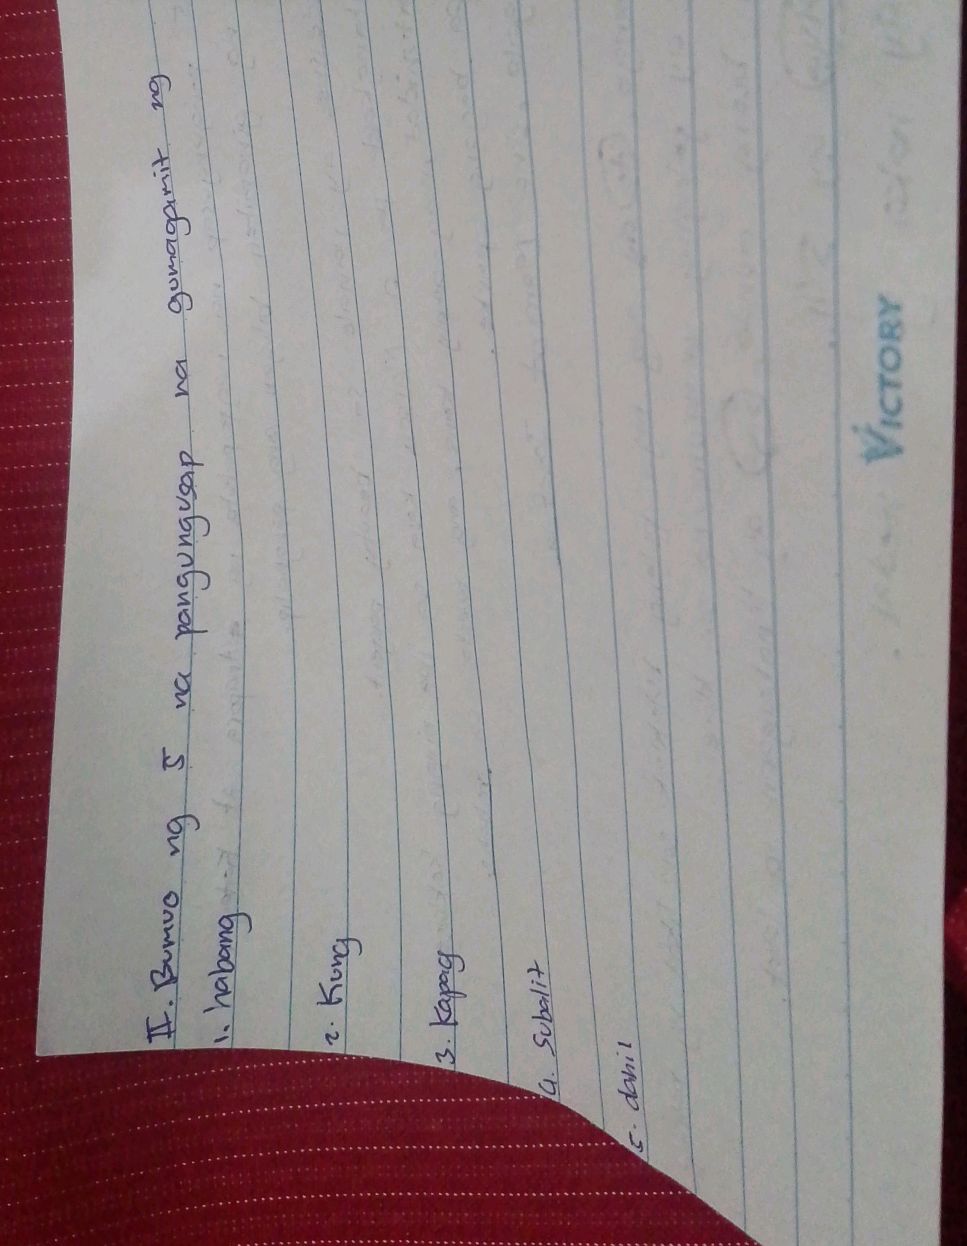 II. Bumuo ng 5 na pangungusap na gumagamit ng
1. habang
2. Kung
3. Kapag
4. Subalit
5. dahil
VICTORY